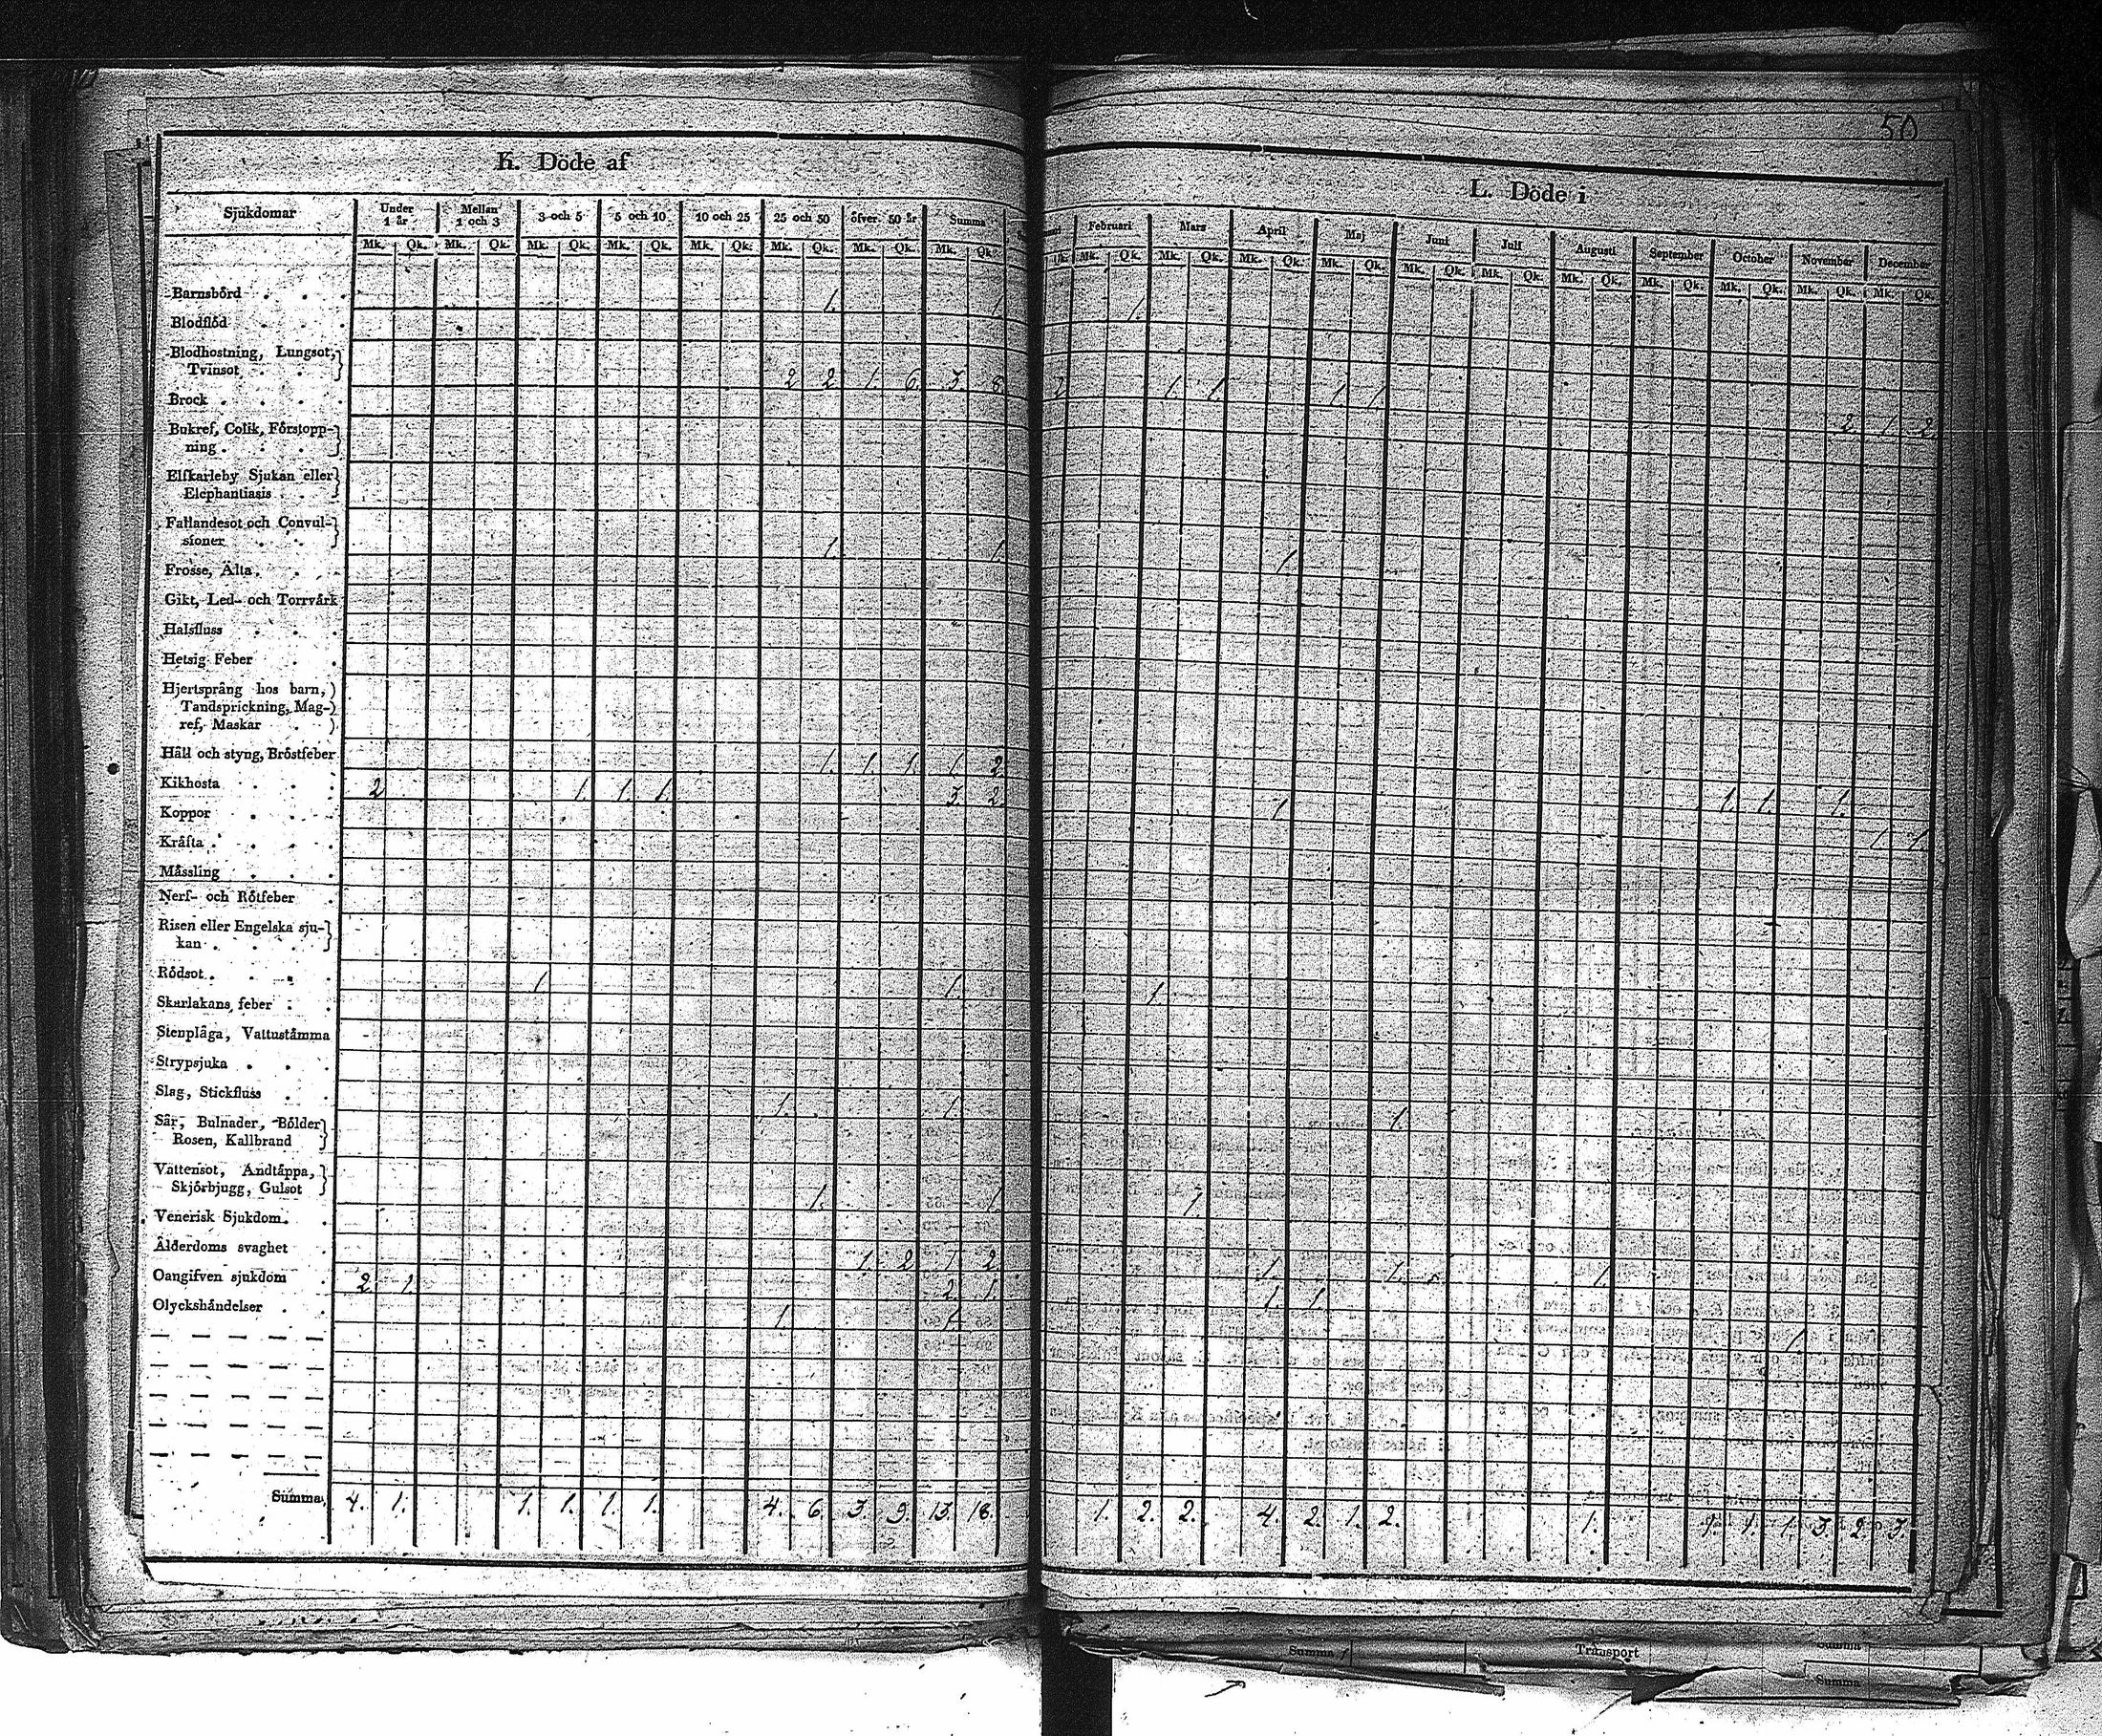 50
K. Döde af
Sjukdomar Under 1 år Mellan 1 och 3 3 och 5 5 och 10 10 och 25 25 och 50 öfver 50 år Summa
Mk. Qk. Mk. Qk. Mk. Qk. Mk. Qk. Mk. Qk. Mk. Qk. Mk. Qk. Mk. Qk.
Barnsbörd 1. 1.
Blodflöd
Blodhostning, Lungsot,
Tvinsot 2 2 1. 6 3 8
Brock
Bukref, Colik, Förstopp-
ning
Elfkarleby Sjukan eller
Elephantiasis
Fallandesot och Convul-
sioner 1. 1.
Frosse, Älta
Gikt, Led- och Torrvärk
Halsfluss
Hetsig Feber
Hjertsprång hos barn,
Tandsprickning, Mag-
ref, Maskar
Håll och styng, Bröstfeber 1. 1. 1. 1. 2.
Kikhosta 2 1. 1. 1. 3. 2.
Koppor
Kräfta
Mässling
Nerf- och Rötfeber
Risen eller Engelska sju-
kan
Rödsot 1 1.
Skarlakans feber
Stenplåga, Vattustämma
Strypsjuka
Slag, Stickfluss 1. 1.
Sår, Bulnader, Bölder
Rosen, Kallbrand
Vattensot, Andtäppa,
Skjörbjugg, Gulsot 1. 1.
Venerisk Sjukdom
Ålderdoms svaghet 1. 2 1 2.
Oangifven sjukdom 2. 1. 2. 1.
Olyckshändelser 1. 1.
Summa 4. 1. 1. 1. 1. 1. 4. 6. 3. 9. 13. 18.
L. Döde i
Februari Mars April Maj Juni Juli Augusti September October November December
Qk. Mk. Qk. Mk. Qk. Mk. Qk. Mk. Qk. Mk. Qk. Mk. Qk. Mk. Qk. Mk. Qk. Mk. Qk. Mk. Qk. Mk. Qk.
1.
2 1. 1 1. 1. 2. 1. 2.
1.
1 1. 1. 1.
1. 1.
1
1.
1
1. 1. 1.
1. 1.
1.
1. 2. 2. 4. 2. 1. 2. 1. 1. 1. 1. 3. 2. 3.
Summa Transport Summa
Summa